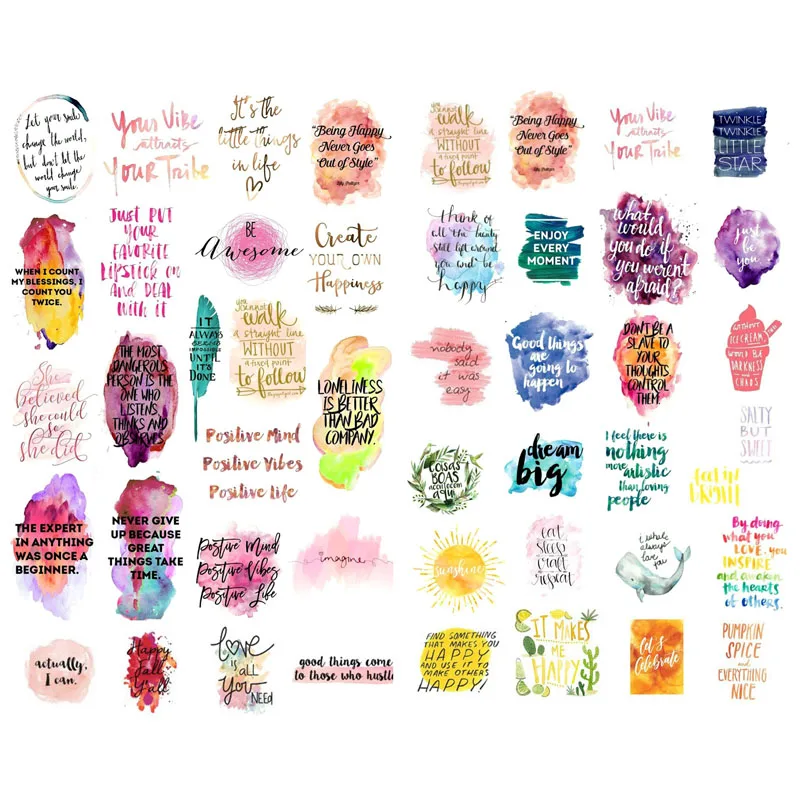 Let your smile
change the world,
but don't let the
world change
your smile.
Your Vibe
attracts
Your Tribe
It's the
little things
in life
"Being Happy
Never Goes
Out of Style"
Lilly Pulitzer
you cannot
walk
a straight line
WITHOUT
a fixed point
to follow
"Being Happy
Never Goes
Out of Style"
Lilly Pulitzer
Your Vibe
attracts
Your Tribe
TWINKLE
TWINKLE
LITTLE
STAR
WHEN I COUNT
MY BLESSINGS, I
COUNT YOU
TWICE.
JUST PUT
YOUR
FAVORITE
LIPSTICK ON
AND DEAL
with it
BE
Awesome
Create
YOUR OWN
Happiness
think of
all the beauty
still left around
you and be
happy
ENJOY
EVERY
MOMENT
what
would
you do if
you weren't
afraid?
just
be
you
She
believed
she could
so
she did
THE MOST
DANGEROUS
PERSON IS THE
ONE WHO
LISTENS,
THINKS AND
OBSERVES.
IT
ALWAYS
SEEMS
IMPOSSIBLE
UNTIL
IT'S
DONE
you cannot
walk
a straight line
WITHOUT
a fixed point
to follow
LONELINESS
IS BETTER
THAN BAD
COMPANY.
Positive Mind
Positive Vibes
Positive Life
nobody
said
it was
easy
Good things
are
going to
happen
DON'T BE A
SLAVE TO
YOUR
THOUGHTS,
CONTROL
THEM.
WITHOUT
ICE CREAM,
WOULD BE
DARKNESS
AND
CHAOS
SALTY
BUT
SWEET
COISAS
BOAS
acontecem
aqui
dream
big
i feel there is
nothing
more artistic
than loving
people
THE EXPERT
IN ANYTHING
WAS ONCE A
BEGINNER.
NEVER GIVE
UP BECAUSE
GREAT
THINGS TAKE
TIME.
Positive Mind
Positive Vibes
Positive Life
imagine
sunshine
eat
sleep
craft
repeat
i whale
always
love you
By doing
what you
LOVE, you
INSPIRE
and awaken
the hearts
of others.
actually,
I can.
Happy
fall
Y'all
LOVE
is all
You
NEED
good things come
to those who hustle
FIND SOMETHING
THAT MAKES YOU
HAPPY
AND USE IT TO
MAKE OTHERS
HAPPY!
IT MAKES
ME
HAPPY
Let's
Celebrate
PUMPKIN
SPICE
and
EVERYTHING
NICE